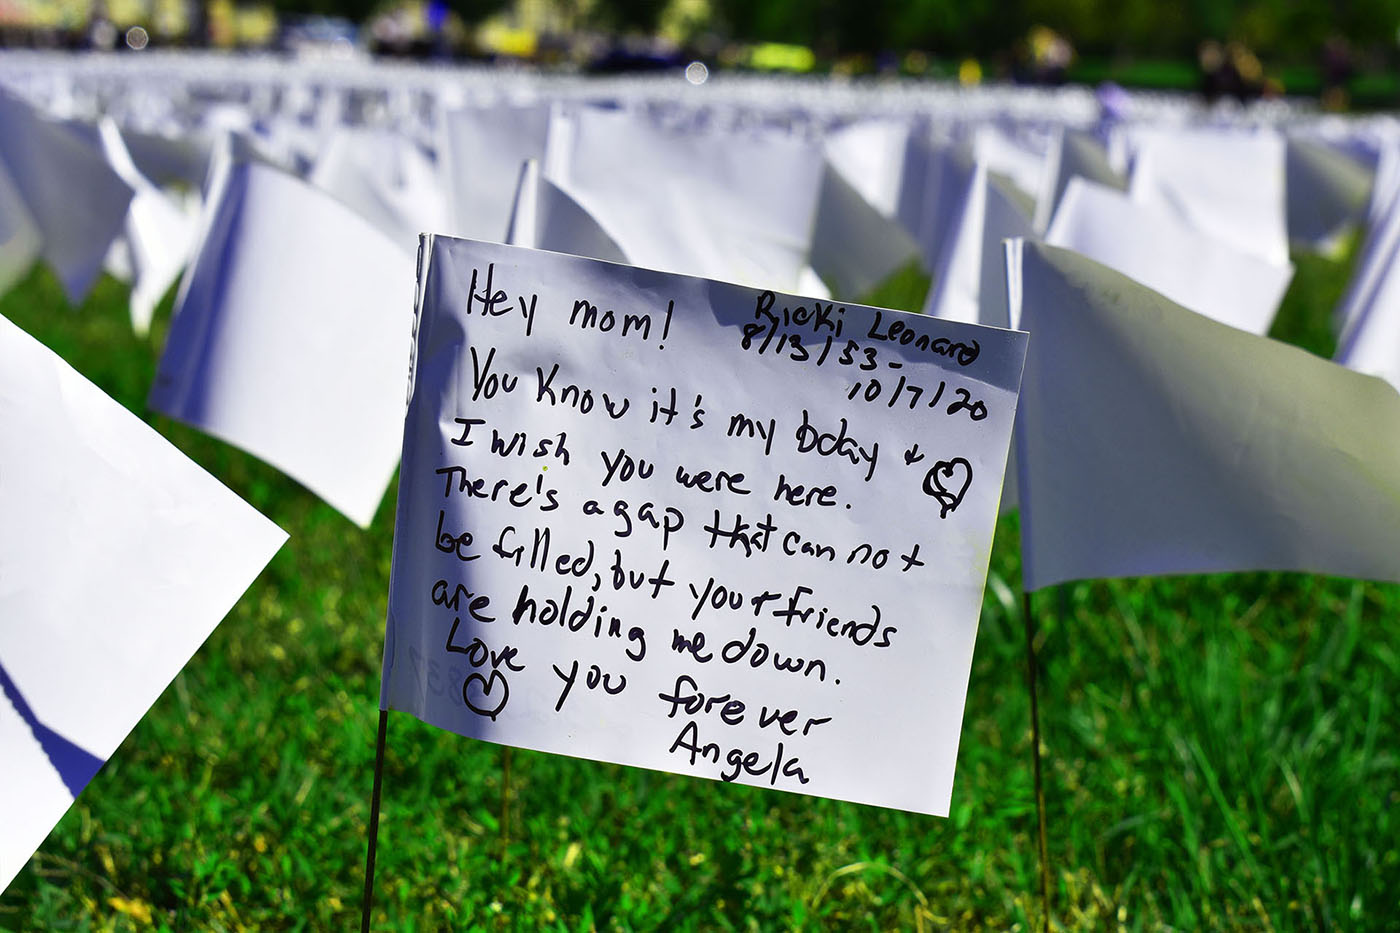 Hey mom!
Ricki Leonard
8/13/53-
10/7/20
You know it's my bday &
I wish you were here.
There's a gap that can not
be filled, but your friends
are holding me down.
Love you forever
Angela